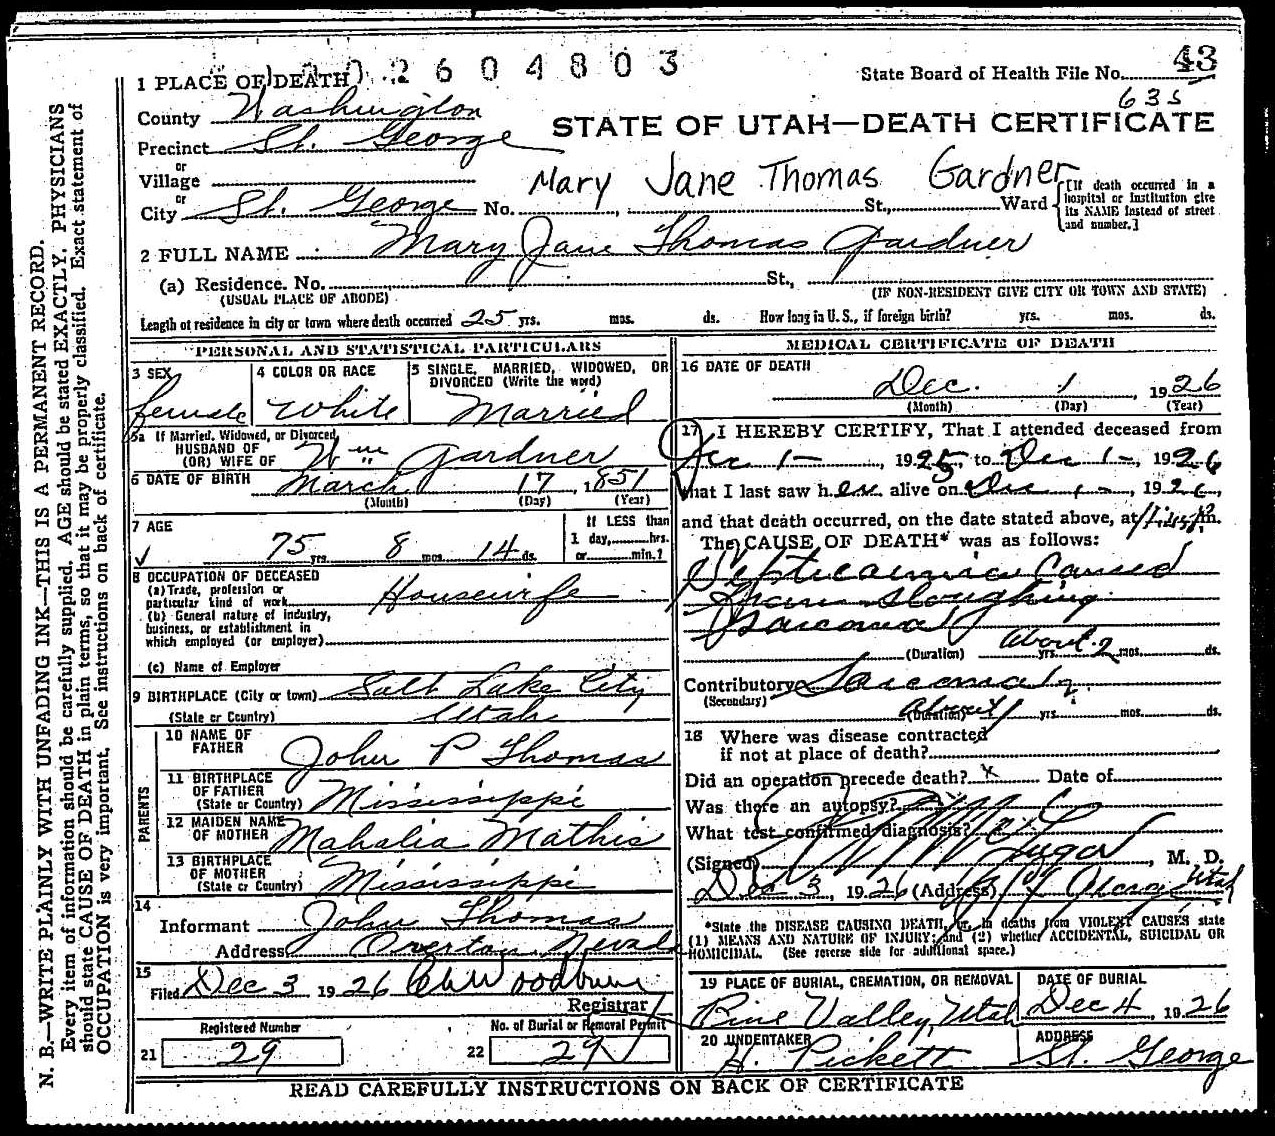 2604803
43
1 PLACE OF DEATH
State Board of Health File No.
635
County Washington
STATE OF UTAH—DEATH CERTIFICATE
Precinct St. George
or
Village
Mary Jane Thomas Gardner
or
City St. George No. St., Ward
[If death occurred in a
hospital or institution give
its NAME instead of street
and number.]
2 FULL NAME Mary Jane Thomas Gardner
(a) Residence. No. St.,
(USUAL PLACE OF ABODE) (IF NON-RESIDENT GIVE CITY OR TOWN AND STATE)
Length of residence in city or town where death occurred 25 yrs. mos. ds. How long in U.S., if foreign birth? yrs. mos. ds.
PERSONAL AND STATISTICAL PARTICULARS
3 SEX
female
4 COLOR OR RACE
White
5 SINGLE, MARRIED, WIDOWED, OR
DIVORCED (Write the word)
Married
5a If Married, Widowed, or Divorced
HUSBAND OF
(OR) WIFE OF Wm Gardner
6 DATE OF BIRTH March 17, 1851
(Month) (Day) (Year)
7 AGE
75 yrs. 8 mos. 14 ds.
If LESS than
1 day, hrs.
or min.?
8 OCCUPATION OF DECEASED
(a) Trade, profession or
particular kind of work Housewife
(b) General nature of industry,
business, or establishment in
which employed (or employer)
(c) Name of Employer
9 BIRTHPLACE (City or town) Salt Lake City
(State or Country) Utah
PARENTS
10 NAME OF
FATHER John P Thomas
11 BIRTHPLACE
OF FATHER
(State or Country) Mississippi
12 MAIDEN NAME
OF MOTHER Mahalia Mathis
13 BIRTHPLACE
OF MOTHER
(State or Country) Mississippi
14
Informant John Thomas
Address Overton, Nevada
15
Filed Dec 3 1926 Woodbury
Registrar
Registered Number
21 29
No. of Burial or Removal Permit
22 29
MEDICAL CERTIFICATE OF DEATH
16 DATE OF DEATH
Dec. 1 1926
(Month) (Day) (Year)
17 I HEREBY CERTIFY, That I attended deceased from
Dec 1-, 1925, to Dec 1-, 1926
that I last saw her alive on Dec 1-, 1926,
and that death occurred, on the date stated above, at m.
The CAUSE OF DEATH* was as follows:
Septicaemia Caused
From sloughing
Sarcoma
(Duration) About yrs. 2 mos. ds.
Contributory Sarcoma
(Secondary)
(Duration) about 1 yrs. mos. ds.
18 Where was disease contracted
if not at place of death?
Did an operation precede death? x Date of
Was there an autopsy?
What test confirmed diagnosis?
(Signed) McGregor, M. D.
Dec 3, 1926 (Address) St George Utah
*State the DISEASE CAUSING DEATH, or, in deaths from VIOLENT CAUSES, state
(1) MEANS AND NATURE OF INJURY; and (2) whether ACCIDENTAL, SUICIDAL OR
HOMICIDAL. (See reverse side for additional space.)
19 PLACE OF BURIAL, CREMATION, OR REMOVAL
Pine Valley, Utah
DATE OF BURIAL
Dec 4, 1926
20 UNDERTAKER
H. Pickett
ADDRESS
St. George
READ CAREFULLY INSTRUCTIONS ON BACK OF CERTIFICATE
N. B.—WRITE PLAINLY WITH UNFADING INK—THIS IS A PERMANENT RECORD.
Every item of information should be carefully supplied. AGE should be stated EXACTLY. PHYSICIANS
should state CAUSE OF DEATH in plain terms, so that it may be properly classified. Exact statement of
OCCUPATION is very important. See instructions on back of certificate.